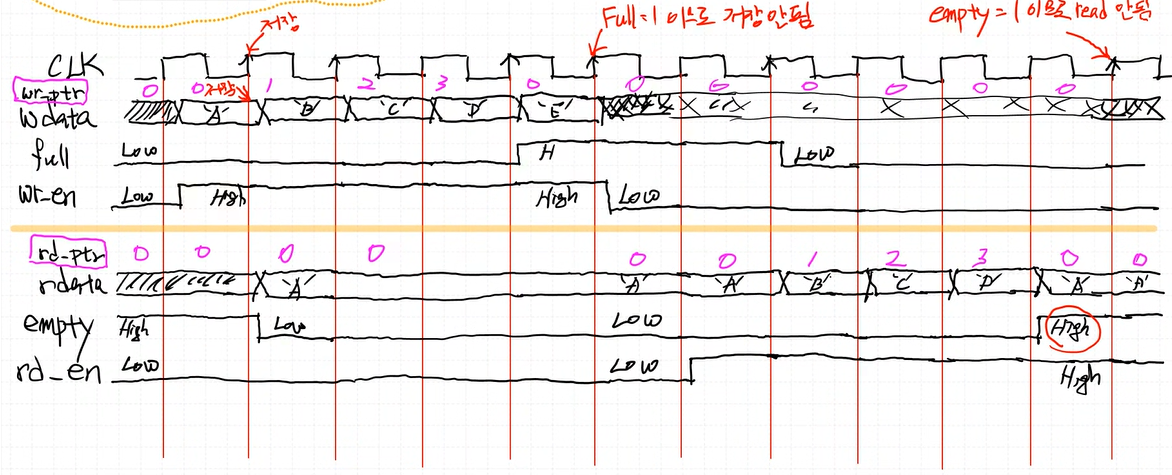 저장 Full=1 이므로 저장 안됨 empty=1 이므로 read 안됨
CLK
wr_ptr 0 0 1 2 3 0 0 0 0 0 0 0
저장
wdata 'A' 'B' 'C' 'D' 'E'
full Low H Low
wr_en Low High High Low
rd_ptr 0 0 0 0 0 0 1 2 3 0 0
rdata 'A' 'A' 'A' 'B' 'C' 'D' 'A' 'A'
empty High Low Low High
rd_en Low Low High